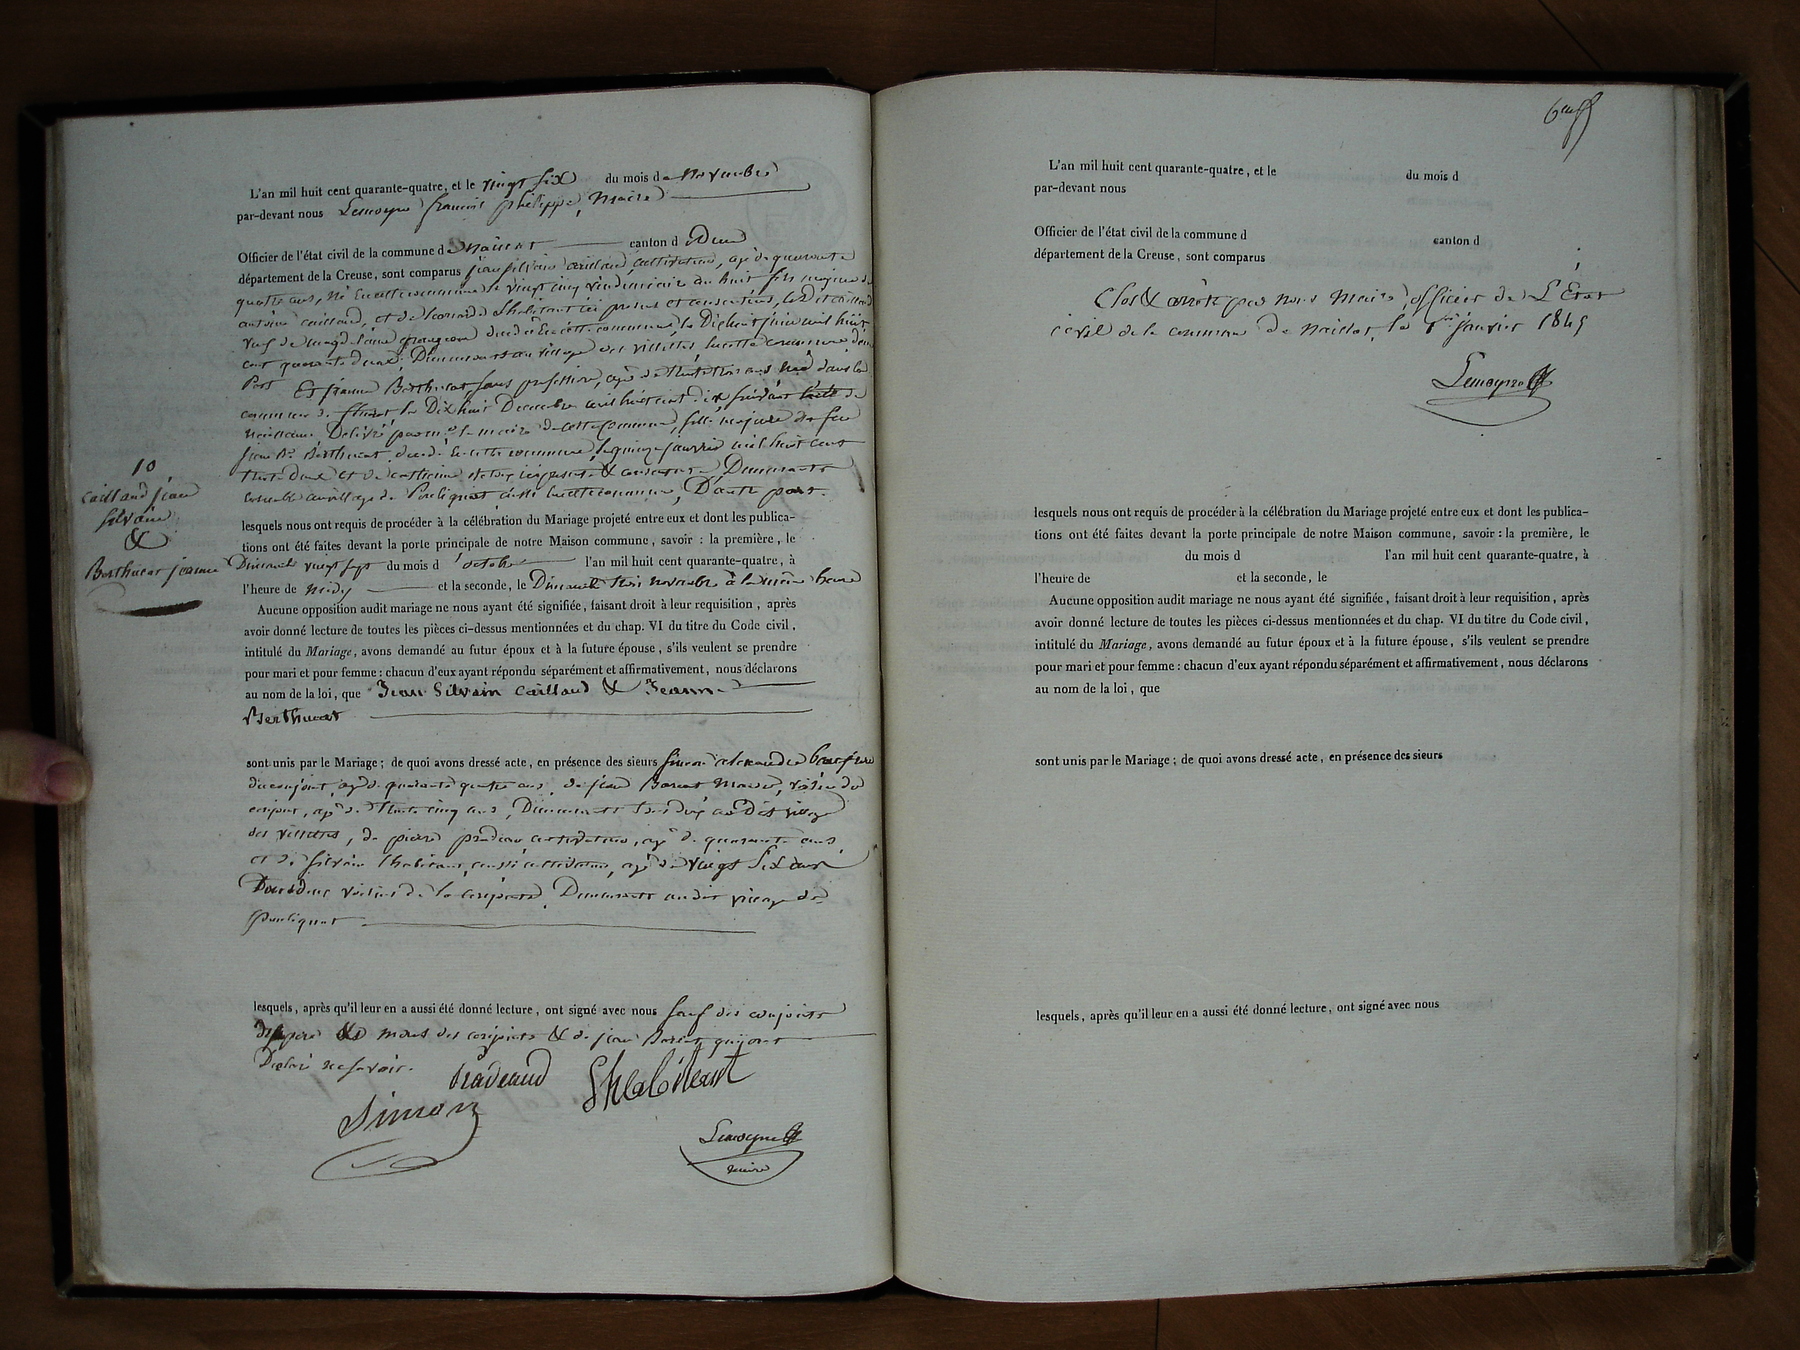 L'an mil huit cent quarante-quatre, et le vingt six du mois de Novembre
par-devant nous Lemoyne françois philippe, Maire
Officier de l'état civil de la commune de Naillat canton de Dun
département de la Creuse, sont comparus jean silvain caillaud, cultivateur, agé de quarante
quatre ans, né en cette commune le vingt cinq vendemiaire an huit, fils majeur de
antoine caillaud, et de Leonarde Lhabitant ici presens et consentens, le dit caillaud
veuf de magdelaine decedée en cette commune le Dix huit juin mil huit
cent quarante deux, Demeurants au village des villettes susditte commune d'une
Part Et jeanne Berthucat sans profession, agée de trente trois ans née dans la
commune de le Dix huit Decembre mil huit cent dix suivant l'acte de
naissance Delivré par mr le maire de cette commune, fille majeure de feu
jean Bte Berthucat, decedé en cette commune, le quinze janvier mil huit cent
trente deux et de catherine ici presente & consentente Demeurants
ensemble au village de Pouligniat aussi susditte commune, D'autre part.
10
caillaud jean
silvain
&
Berthucat jeanne
lesquels nous ont requis de procéder à la célébration du Mariage projeté entre eux et dont les publica-
tions ont été faites devant la porte principale de notre Maison commune, savoir : la première, le
Dimanche vingt sept du mois d'octobre l'an mil huit cent quarante-quatre, à
l'heure de midy et la seconde, le Dimanche trois novembre à la même heure
Aucune opposition audit mariage ne nous ayant été signifiée, faisant droit à leur requisition, après
avoir donné lecture de toutes les pièces ci-dessus mentionnées et du chap. VI du titre du Code civil,
intitulé du Mariage, avons demandé au futur époux et à la future épouse, s'ils veulent se prendre
pour mari et pour femme : chacun d'eux ayant répondu séparément et affirmativement, nous déclarons
au nom de la loi, que Jean Silvain Caillaud & Jeanne
Berthucat
sont unis par le Mariage ; de quoi avons dressé acte, en présence des sieurs Simon alexandre beaufrere
du conjoint, agé de quarante quatre ans, de jean Baret Maçon, voisin du
conjoint, agé de trente cinq ans, Demeurants tous deux au dit village
des villettes, de pierre pradeau cultivateur, agé de quarante ans,
et de silvain Lhabitant, aussi cultivateur, agé de vingt six ans
Tous deux voisins de la conjointe, Demeurants au dit village de
Pouligniat
lesquels, après qu'il leur en a aussi été donné lecture, ont signé avec nous sauf des conjoints
des peres & meres des conjoints & de jean Baret qui ont
Declaré ne savoir.
Pradeaud Lhabitant
Simon
Lemoyne
maire
L'an mil huit cent quarante-quatre, et le du mois d
par-devant nous
Officier de l'état civil de la commune d canton d
département de la Creuse, sont comparus
Clos & arrêté par nous Maire, officier de L'État
civil de la commune de Naillat, le 1er janvier 1845
Lemoyne
lesquels nous ont requis de procéder à la célébration du Mariage projeté entre eux et dont les publica-
tions ont été faites devant la porte principale de notre Maison commune, savoir : la première, le
du mois d l'an mil huit cent quarante-quatre, à
l'heure de et la seconde, le
Aucune opposition audit mariage ne nous ayant été signifiée, faisant droit à leur requisition, après
avoir donné lecture de toutes les pièces ci-dessus mentionnées et du chap. VI du titre du Code civil,
intitulé du Mariage, avons demandé au futur époux et à la future épouse, s'ils veulent se prendre
pour mari et pour femme : chacun d'eux ayant répondu séparément et affirmativement, nous déclarons
au nom de la loi, que
sont unis par le Mariage ; de quoi avons dressé acte, en présence des sieurs
lesquels, après qu'il leur en a aussi été donné lecture, ont signé avec nous